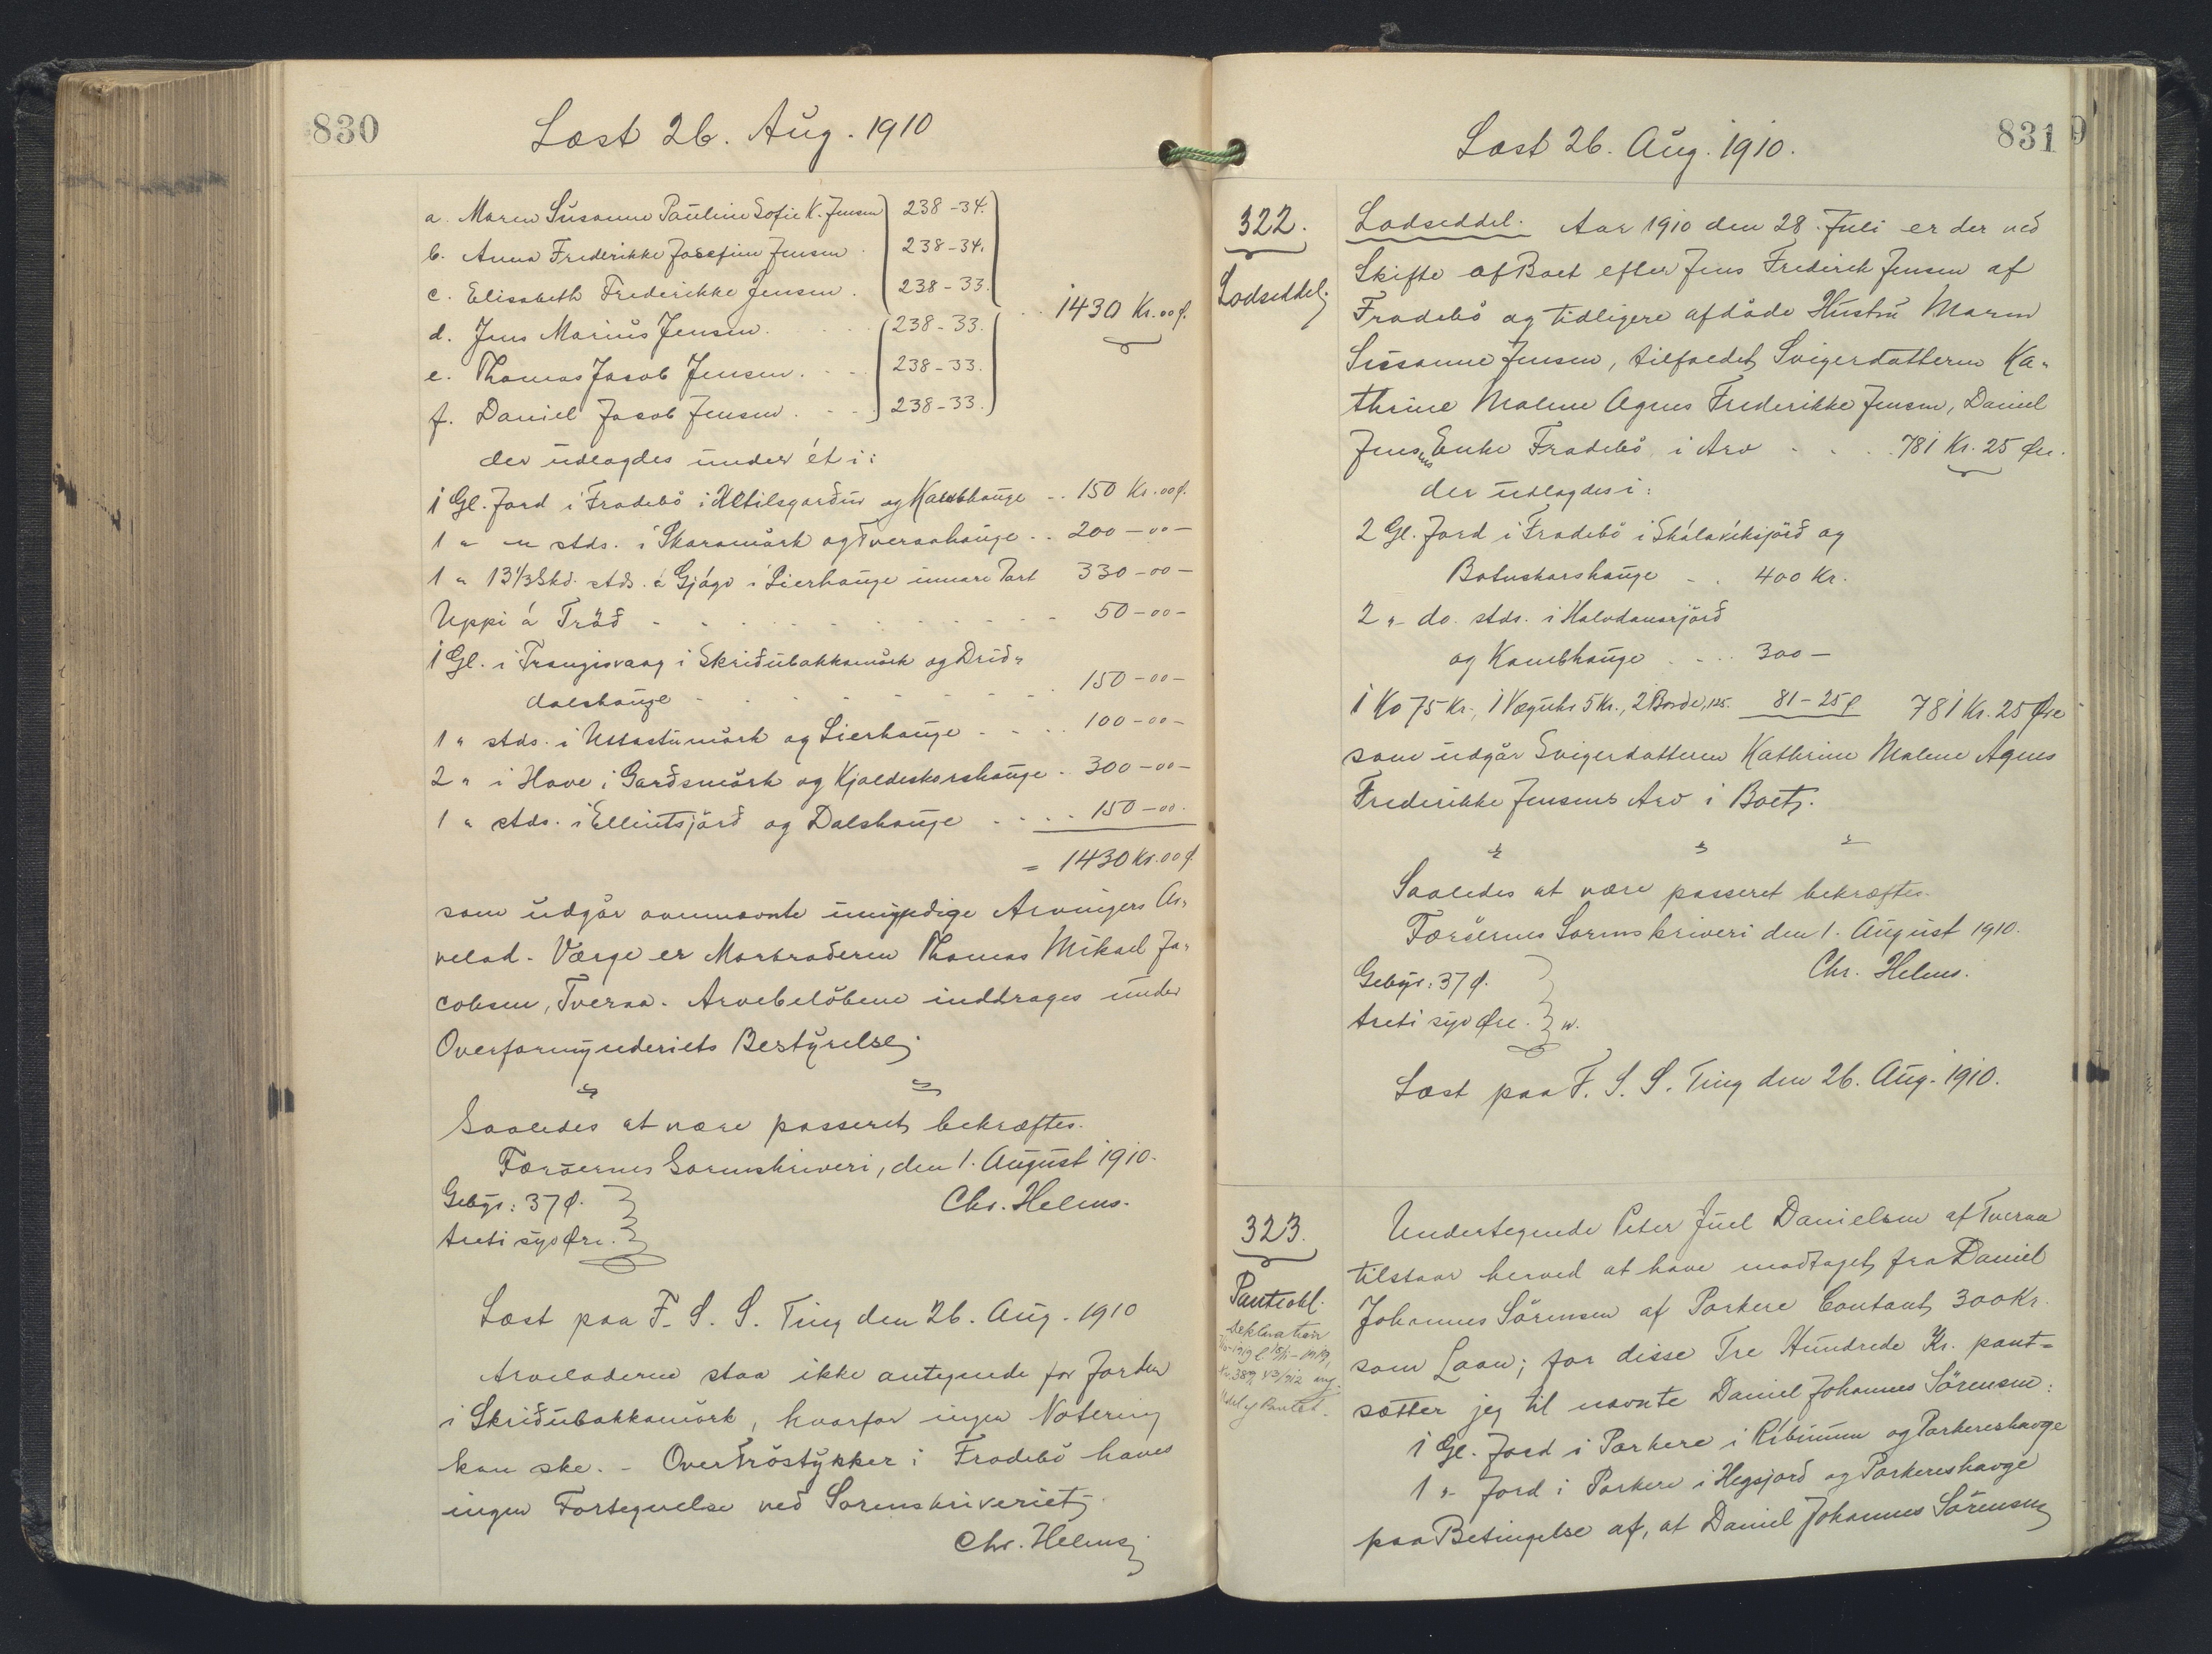 830
Læst 26. Aug. 1910
a. Maren Susanne Pauline Sofie K. Jensen 238-34.
b. Anna Frederikke Josefine Jensen . 238-34.
c. Elisabeth Frederikke Jensen . 238-33.
1430 Kr. 00 Ø.
d. Jens Marius Jensen . . . 238-33.
e. Thomas Jacob Jensen . . . 238-33.
f. Daniel Jacob Jensen . . . 238-33.
der udlagdes under ét i:
1 Gl. Jord i Frodebø i Ketilsgarðun og Kambhauge .. 150 Kr. 00 Ø.
1 " " stds. i Skaramørk og Tveraahauge .. 200-00-
1 " 13 1/3 Skd. stds. á Gjágv i Lierhauge innare Part 330-00-
Uppi á Trøð . . . . . . . . . . 50-00-
1 Gl. i Trangisvaag i Skriðubakkamørk og Drid-
dalshauge . . . . . . . . . 150-00-
1 " stds. i Uttastumørk og Lierhauge . . . . 100-00-
2 " i Hove i Garðsmørk og Kjaldeskorshauge . 300-00-
1 " stds. i Ellintsjørð og Dalshauge . . . . 150-00.
= 1430 Kr. 00 Ø.
som udgør ovennævnte umyndige Arvingers Ar-
velod. Værge er Morbroderen Thomas Mikael Ja-
cobsen, Tveraa. Arvebeløbene inddrages under
Overformynderiets Bestyrelse.
Saaledes at være passeret bekræftes.
Færøernes Sorenskriveri, den 1. August 1910.
Gebyr: 37 Ø.
Chr. Helms.
treti syv Øre.
Læst paa F. S. S. Ting den 26. Aug. 1910
Arveladerne staa ikke antegnede for Jorden
i Skriðubakkamørk, hvorfor ingen Notering
kan ske. - Over Trøstykker i Frodebø haves
ingen Fortegnelse ved Sorenskriveriet.
Chr. Helms.
831
Læst 26. Aug. 1910.
322.
Lodseddel.
Lodseddel. Aar 1910 den 28. Juli er der ved
Skifte af Boet efter Jens Frederik Jensen af
Frodebø og tidligere afdøde Hustru Maren
Susanne Jensen, tilfaldet Svigerdatteren Ka-
thrine Malene Agnes Frederikke Jensen, Daniel
Jensens Enke Frodebø, i Arv . . . 781 Kr. 25 Øre.
der udlagdes i:
2 Gl. Jord i Frodebø i Skálavíksjørð og
Botnskorshauge . . 400 Kr.
2 " do. stds. i Halvdanarjørð
og Kambhauge . . . . 300 -
1 Ko 75 Kr., 1 Væguhr 5 Kr., 2 Borde, 125. 81-25 Ø 781 Kr. 25 Øre
som udgør Svigerdatteren Kathrine Malene Agnes
Frederikke Jensens Arv i Boet.
Saaledes at være passeret bekræftes.
Færøernes Sorenskriveri den 1. August 1910.
Gebyr: 37 Ø.
Chr. Helms.
treti syv Øre.
Læst paa F. S. S. Ting den 26. Aug. 1910.
323.
Panteobl.
Deklaration
Undertegnede Peter Juel Danielsen af Tveraa
tilstaar herved at have modtaget fra Daniel
Johannes Sørensen af Porkere Contant 300 Kr.
som Laan; for disse Tre Hundrede Kr. pant-
sætter jeg til nævnte Daniel Johannes Sørensen:
1 Gl. Jord i Porkere i Ríbinum og Porkereshavge
1 " Jord i Porkere i Hegsjørð og Porkereshavge
paa Betingelse af, at Daniel Johannes Sørensen